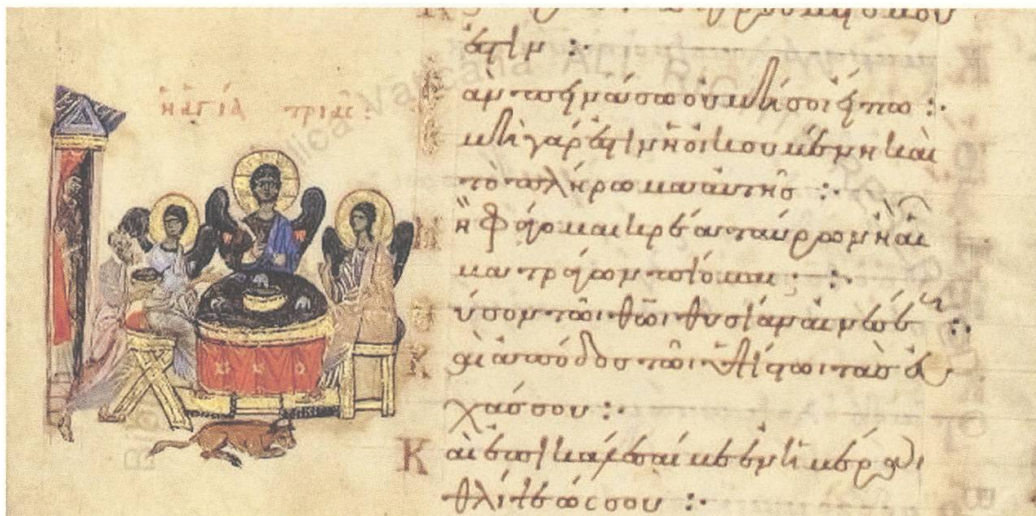 ἡ ἁγία τριάς:
ἐστιν :·
ἐὰν πεινάσω οὐ μή σοι εἴπω :·
ἐμὴ γάρ ἐστιν ἡ οἰκουμένη καὶ
τὸ πλήρωμα αὐτῆς :·
μὴ φάγομαι κρέα ταύρων ἢ αἷ
μα τράγων πίομαι :·
θύσον τῶι θῶι θυσίαν αἰνέσεως :·
καὶ ἀπόδος τῶι ὑψίστωι τὰς εὐ
χάς σου :·
Καὶ ἐπικάλεσαί με ἐν ἡμέραι
θλίψεώς σου :·